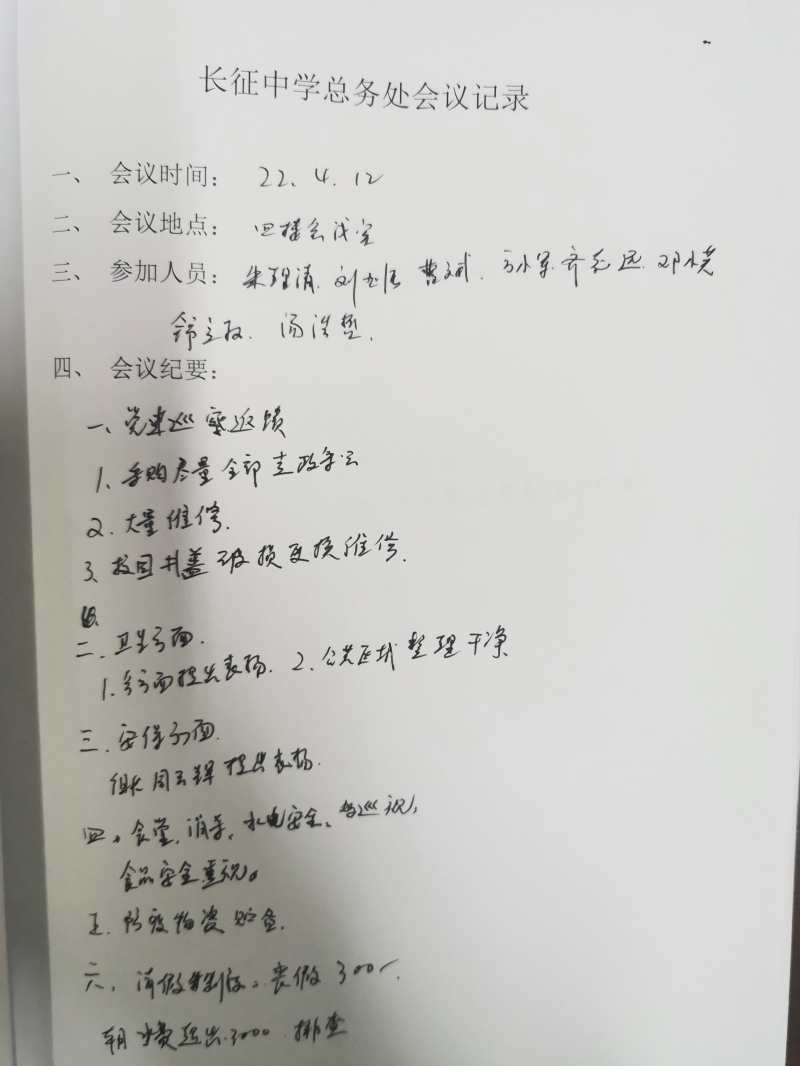 长征中学总务处会议记录
一、 会议时间： 22.4.12
二、 会议地点： 四楼会议室
三、 参加人员： 朱理清. 刘 曹文斌. 孙军 齐志远. 邓
汤洪哲.
四、 会议纪要：
一、党建巡察返馈
1. 采购尽量全部走政采云
2. 大量维修.
3. 校园井盖破损更换维修.
二. 卫生方面.
1. 多方面提出表扬. 2. 公共区域整理干净
三. 安保方面.
组长周云辉提出表扬.
四、食堂. 消毒. 水电安全. 巡视,
食品安全重视。
五. 防疫物资贮备.
六、请假制度. 丧假300.
水费超出3000 排查